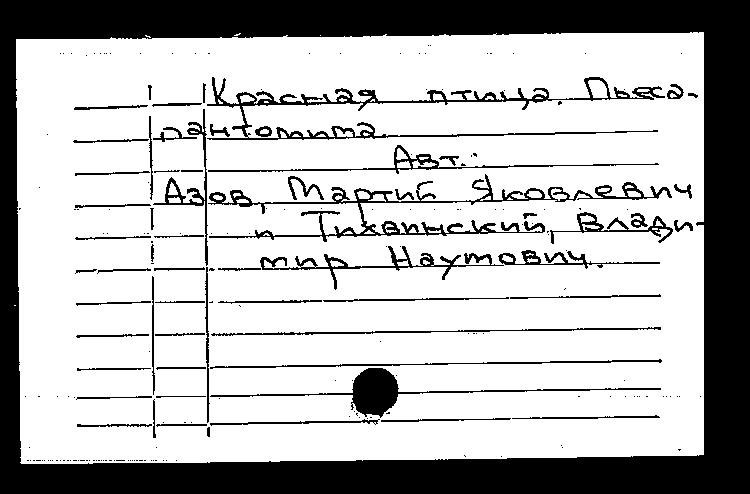 Красная птица. Пьеса-
пантомима.
Авт.:
Азов, Мартий Яковлевич
и Тихвинский, Влади-
мир Наумович.